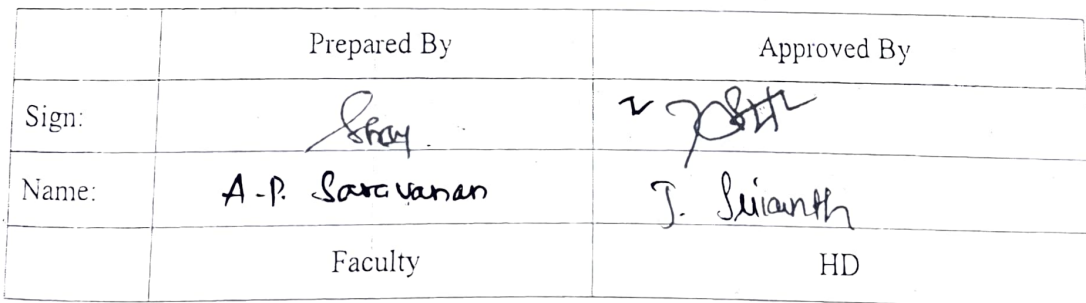 Prepared By Approved By
Sign:
Name: A.P. Saravanan J.
Faculty HD